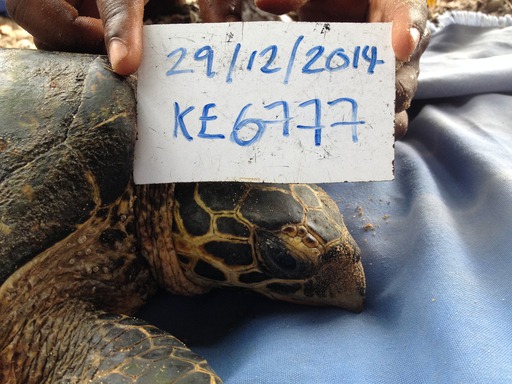 29/12/2014
KE6777